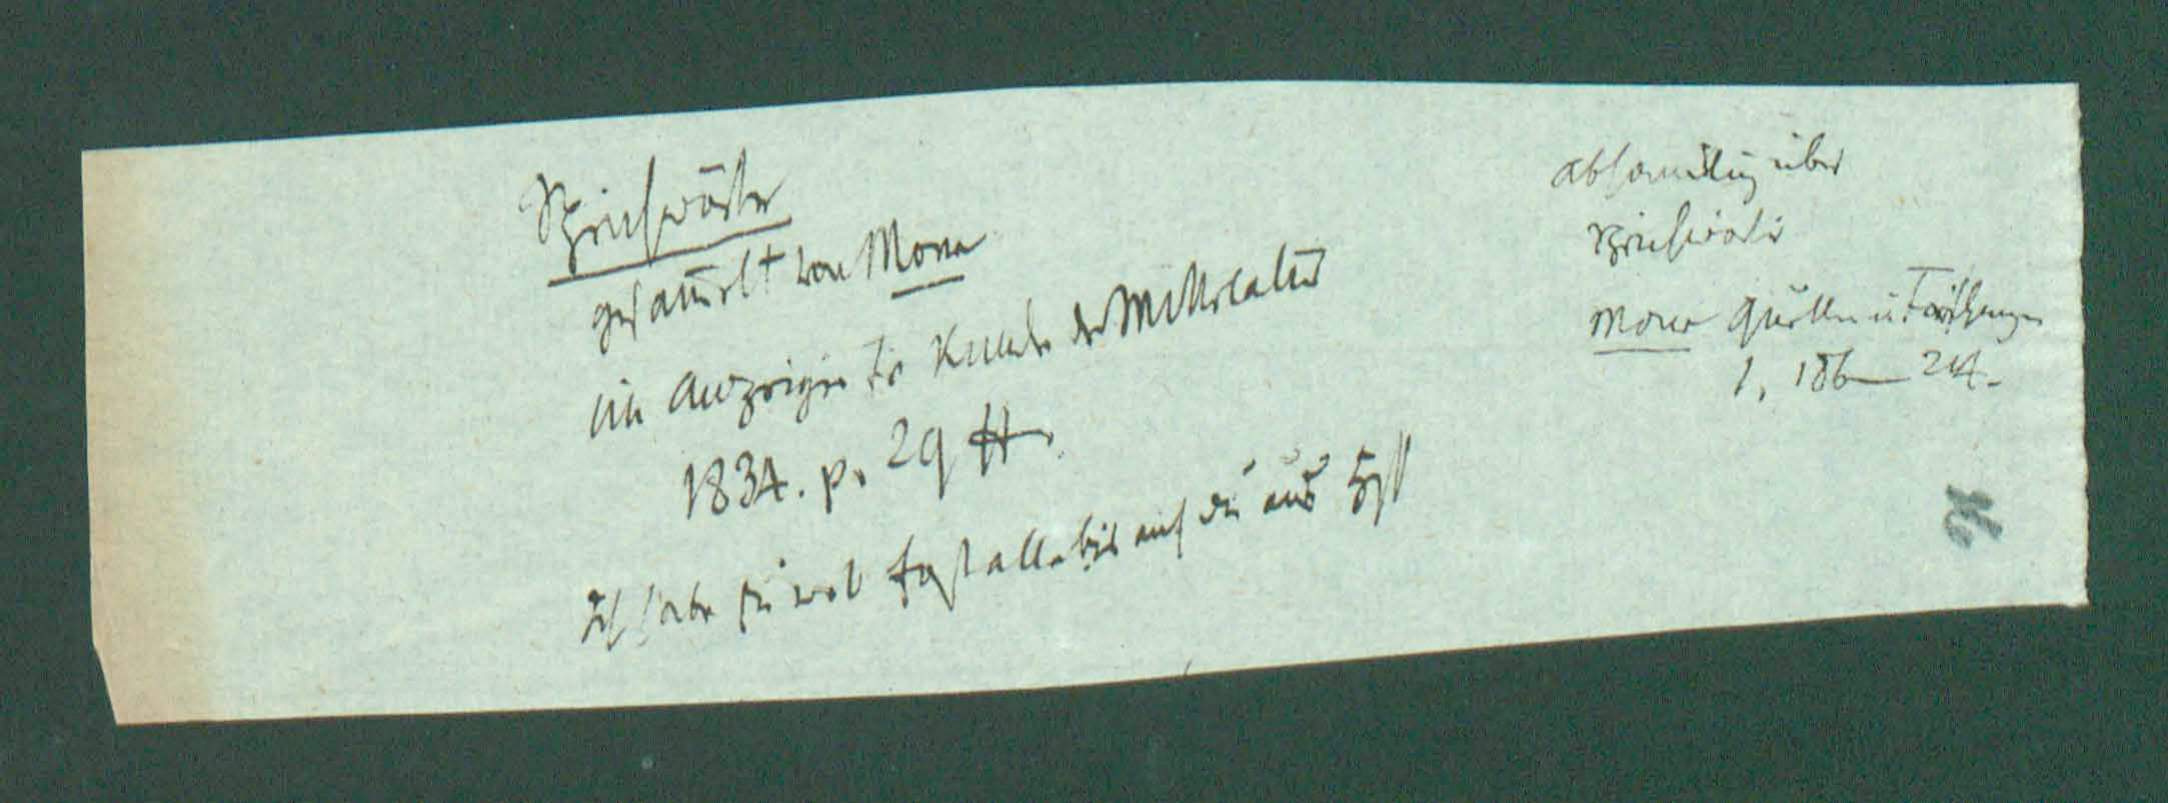 Sprichwörter
gesam̄elt von Mone
im Anzeiger für Kunde des Mittelalters
1834. p. 29 ff.
Ich habe sie wol fast alle bis auf die aus
abhandlung über
Sprichwörter
Mone Quellen u. Forschungen
1, 186–214.